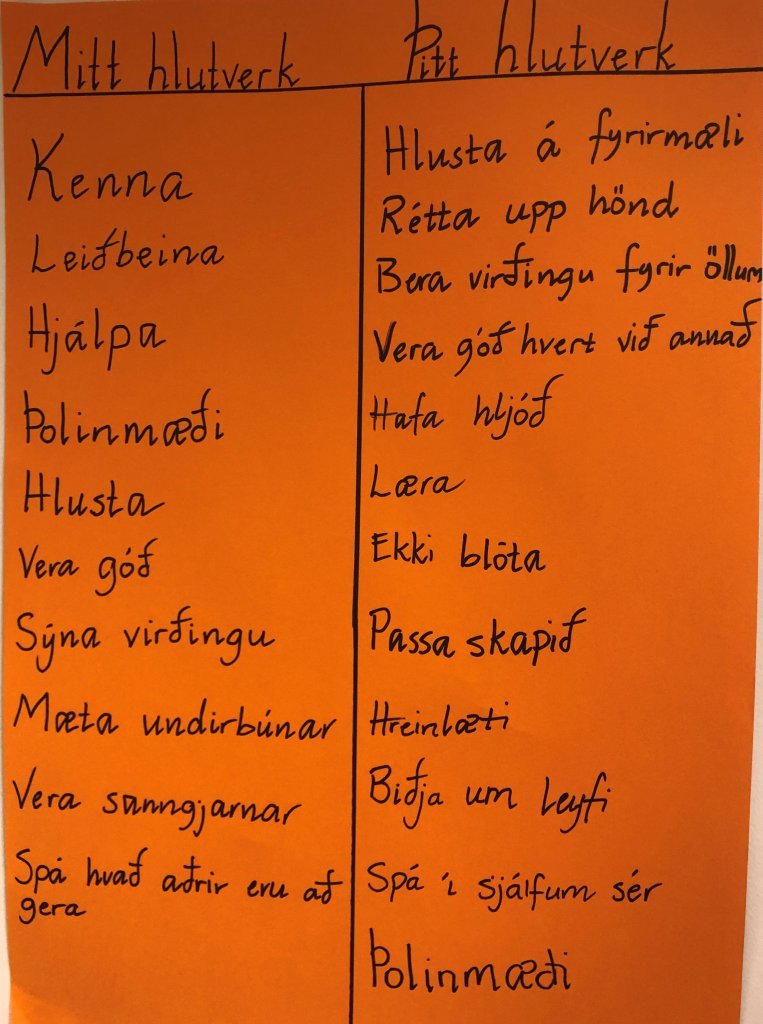 Mitt hlutverk
Kenna
Leiðbeina
Hjálpa
Þolinmæði
Hlusta
Vera góð
Sýna virðingu
Mæta undirbúnar
Vera sanngjarnar
Spá hvað aðrir eru að
gera
Þitt hlutverk
Hlusta á fyrirmæli
Rétta upp hönd
Bera virðingu fyrir öllum
Vera góð hvert við annað
Hafa hljóð
Læra
Ekki blóta
Passa skapið
Hreinlæti
Biðja um leyfi
Spá í sjálfum sér
Þolinmæði